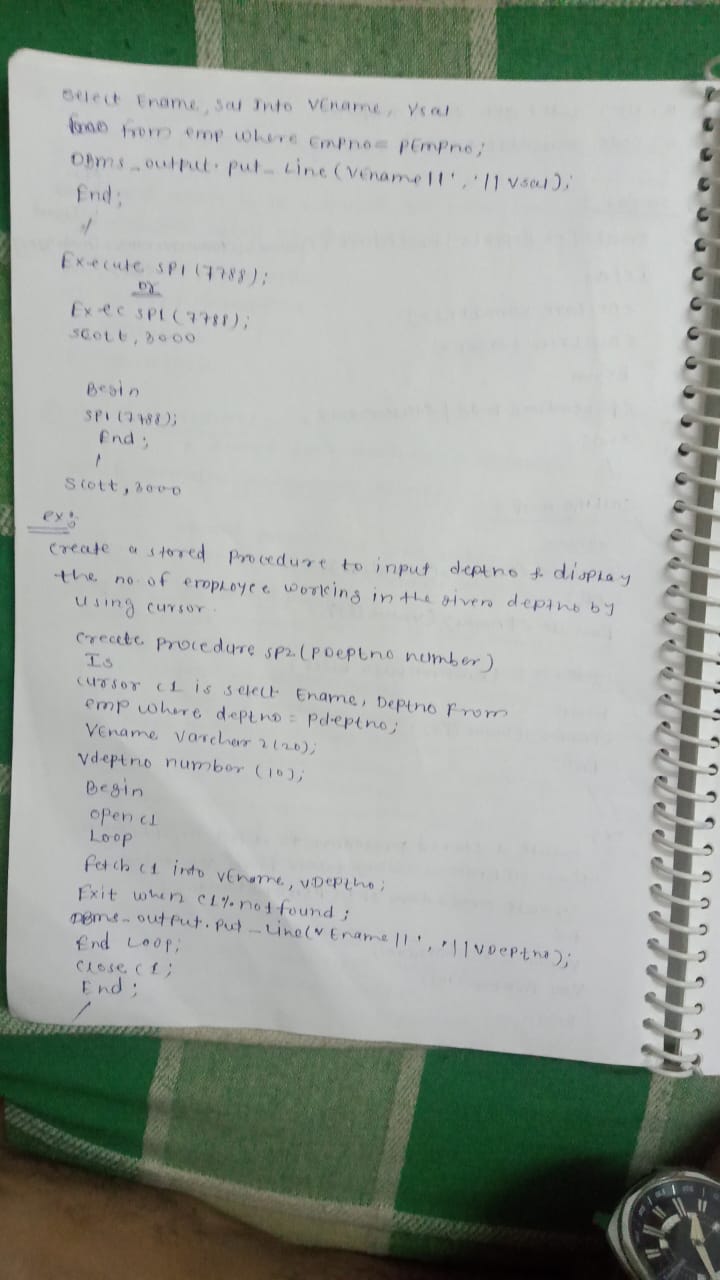 Select Ename, sal Into VEname, Vsal
from emp where Empno= PEmpno;
DBms_output.put_Line(VEname||','||vsal);
End;
/
Execute SP1(7788);
or
Exec SP1(7788);
Scott, 3000
Begin
SP1(7788);
End;
/
Scott, 3000
ex:
Create a stored Procedure to input deptno & display
the no of employee working in the given deptno by
using cursor.
Create Procedure SP2(PDeptno number)
Is
cursor c1 is select Ename, Deptno From
emp where deptno = Pdeptno;
VEname Varchar2(20);
Vdeptno number (10);
Begin
open c1
Loop
fetch c1 into VEname, VDeptno;
Exit when c1%notfound;
DBms_output.put_Line(VEname||','||VDeptno);
End Loop;
Close c1;
End;
/